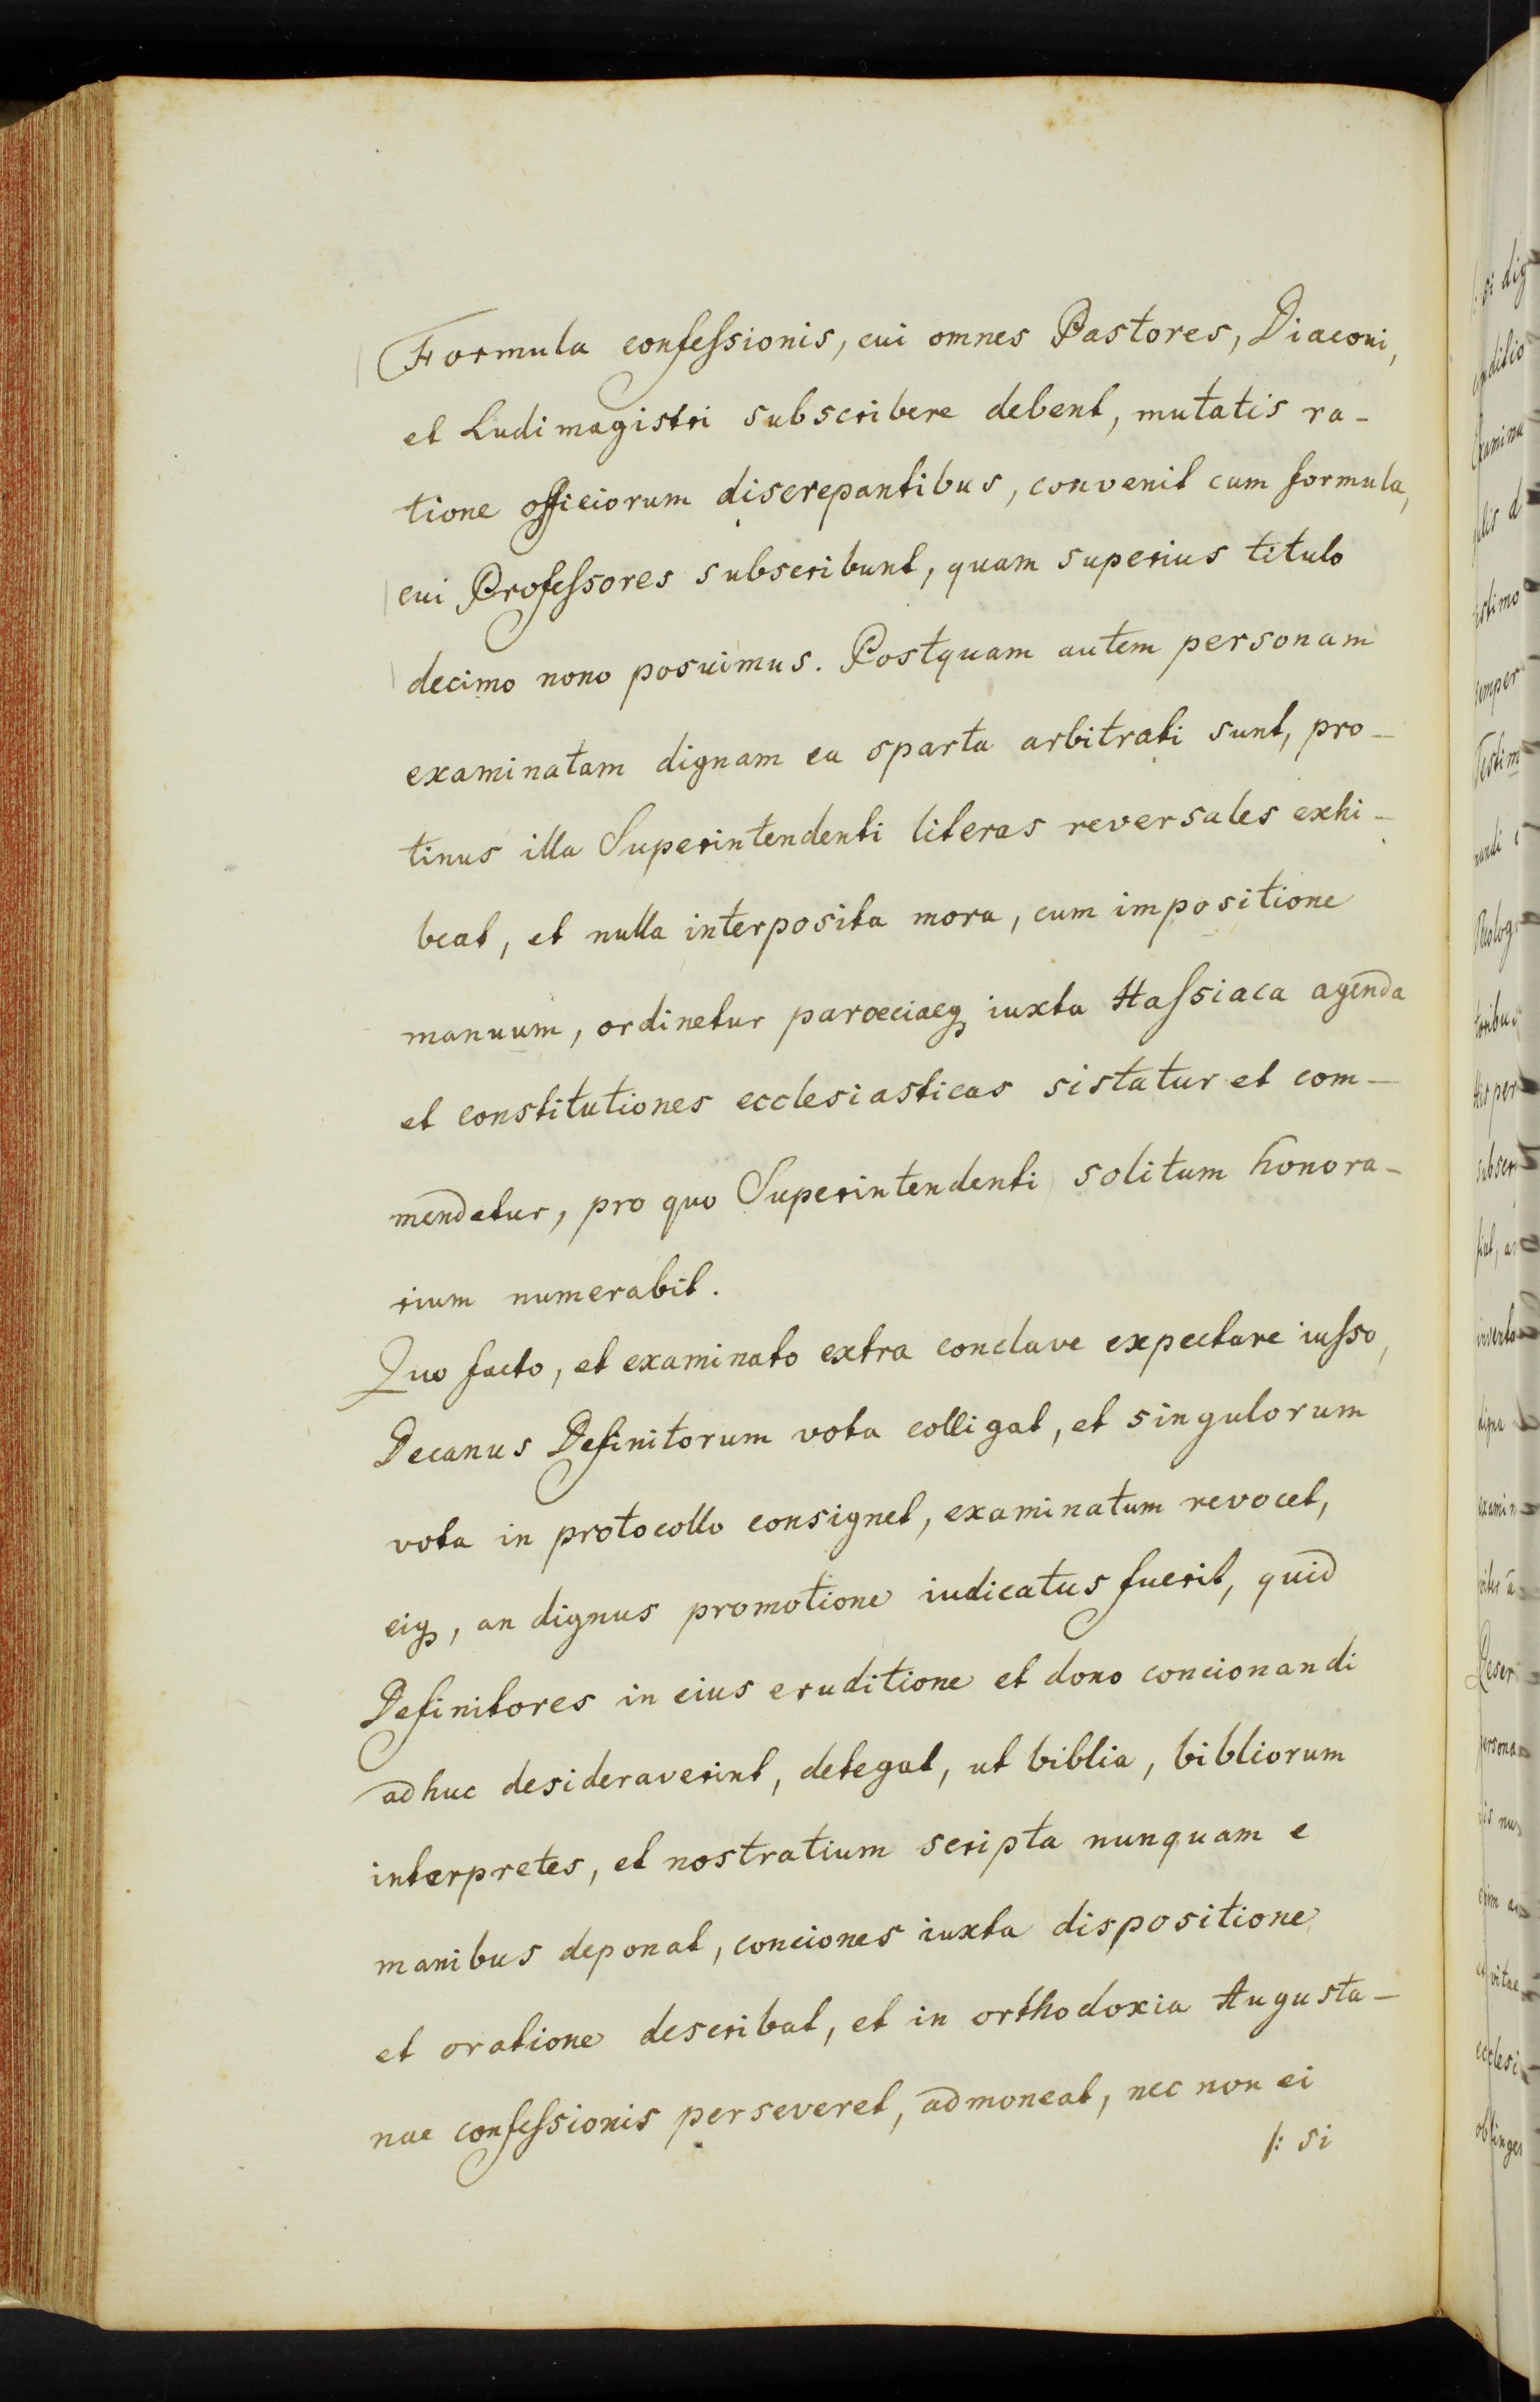 Formula confeſsionis, cui omnes Pastores, Diaconi,
et Ludimagistri subscribere debent, mutatis ra-
tione officiorum discrepantibus, convenit cum formula,
cui Profeſsores subscribunt, quam superius titulo
decimo nono posuimus. Postquam autem personam
examinatam dignam ea sparta arbitrati sunt, pro-
tinus illa Superintendenti literas reversales exhi-
beat, et nulla interposita mora, cum impositione
manuum, ordinetur paroeciaeq₃ iuxta Haſsiaca agenda
et constitutiones ecclesiasticas sistatur et com-
mendetur, pro quo Superintendenti solitum honora-
rium numerabit.
Quo facto, et examinato extra conclave expectare iuſso,
Decanus Definitorum vota colligat, et singulorum
vota in protocollo consignet, examinatum revocet,
eiq₃, an dignus promotione iudicatus fuerit, quid
Definitores in eius eruditione et dono concionandi
adhuc desideraverint, detegat, ut biblia, bibliorum
interpretes, et nostratium scripta nunquam e
manibus deponat, conciones iuxta dispositione
et oratione describat, et in orthodoxia Augusta-
nae confeſsionis perseveret, admoneat, nec non ei
/: si